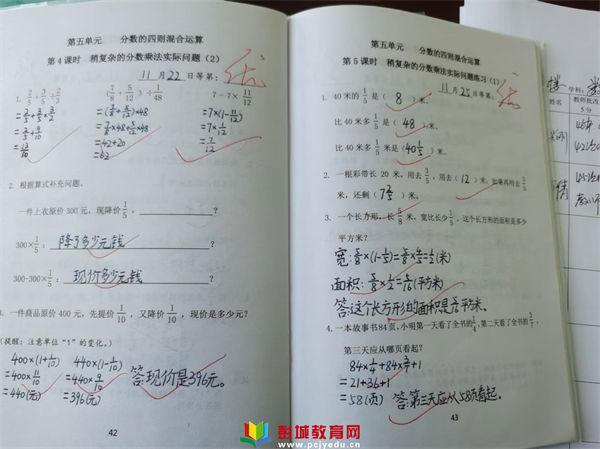 第五单元 分数的四则混合运算
第4课时 稍复杂的分数乘法实际问题（2）
11月22日等第：优
7－7×11/12
=7×(1-11/12)
=7×1/12
=7/12
=(7/8+5/12)×48
=7/8×48+5/12×48
=42+20
=62
2. 根据算式补充问题。
一件上衣原价300元，现降价1/5，？
300×1/5：降了多少元钱？
300-300×1/5：现价多少元钱？
一件商品原价400元，先提价1/10，又降价1/10，现价是多少元？
(提醒：注意单位“1”的变化。)
400×(1+1/10)
=400×11/10
=440(元)
440×(1-1/10)
=440×9/10
=396(元)
答：现价是396元。
42
第五单元 分数的四则混合运算
第5课时 稍复杂的分数乘法实际问题练习（1）
11月25日等第：优
1. 40米的1/5是（8）米。
比40米多1/5是（48）米。
比40米多1/5米是（40 1/5）米。
2. 一根彩带长20米，用去3/5，用去（12）米，如果再用去3/5
米，还剩（7 2/5）米。
3. 一个长方形，长5/8米，宽比长少1/5，这个长方形的面积是多少
平方米？
宽：5/8×(1-1/5)=5/8×4/5=1/2(米)
面积：5/8×1/2=5/16(平方米)
答：这个长方形的面积是5/16平方米。
4. 一本故事书84页，小明第一天看了全书的1/4，第二天看了全书的3/7，
第三天应从哪页看起？
84×1/4+84×3/7+1
=21+36+1
=58(页)
答：第三天应从58页看起。
43
学科：
姓名
教师批改
5分
彭城教育网
www.pcjyedu.cn